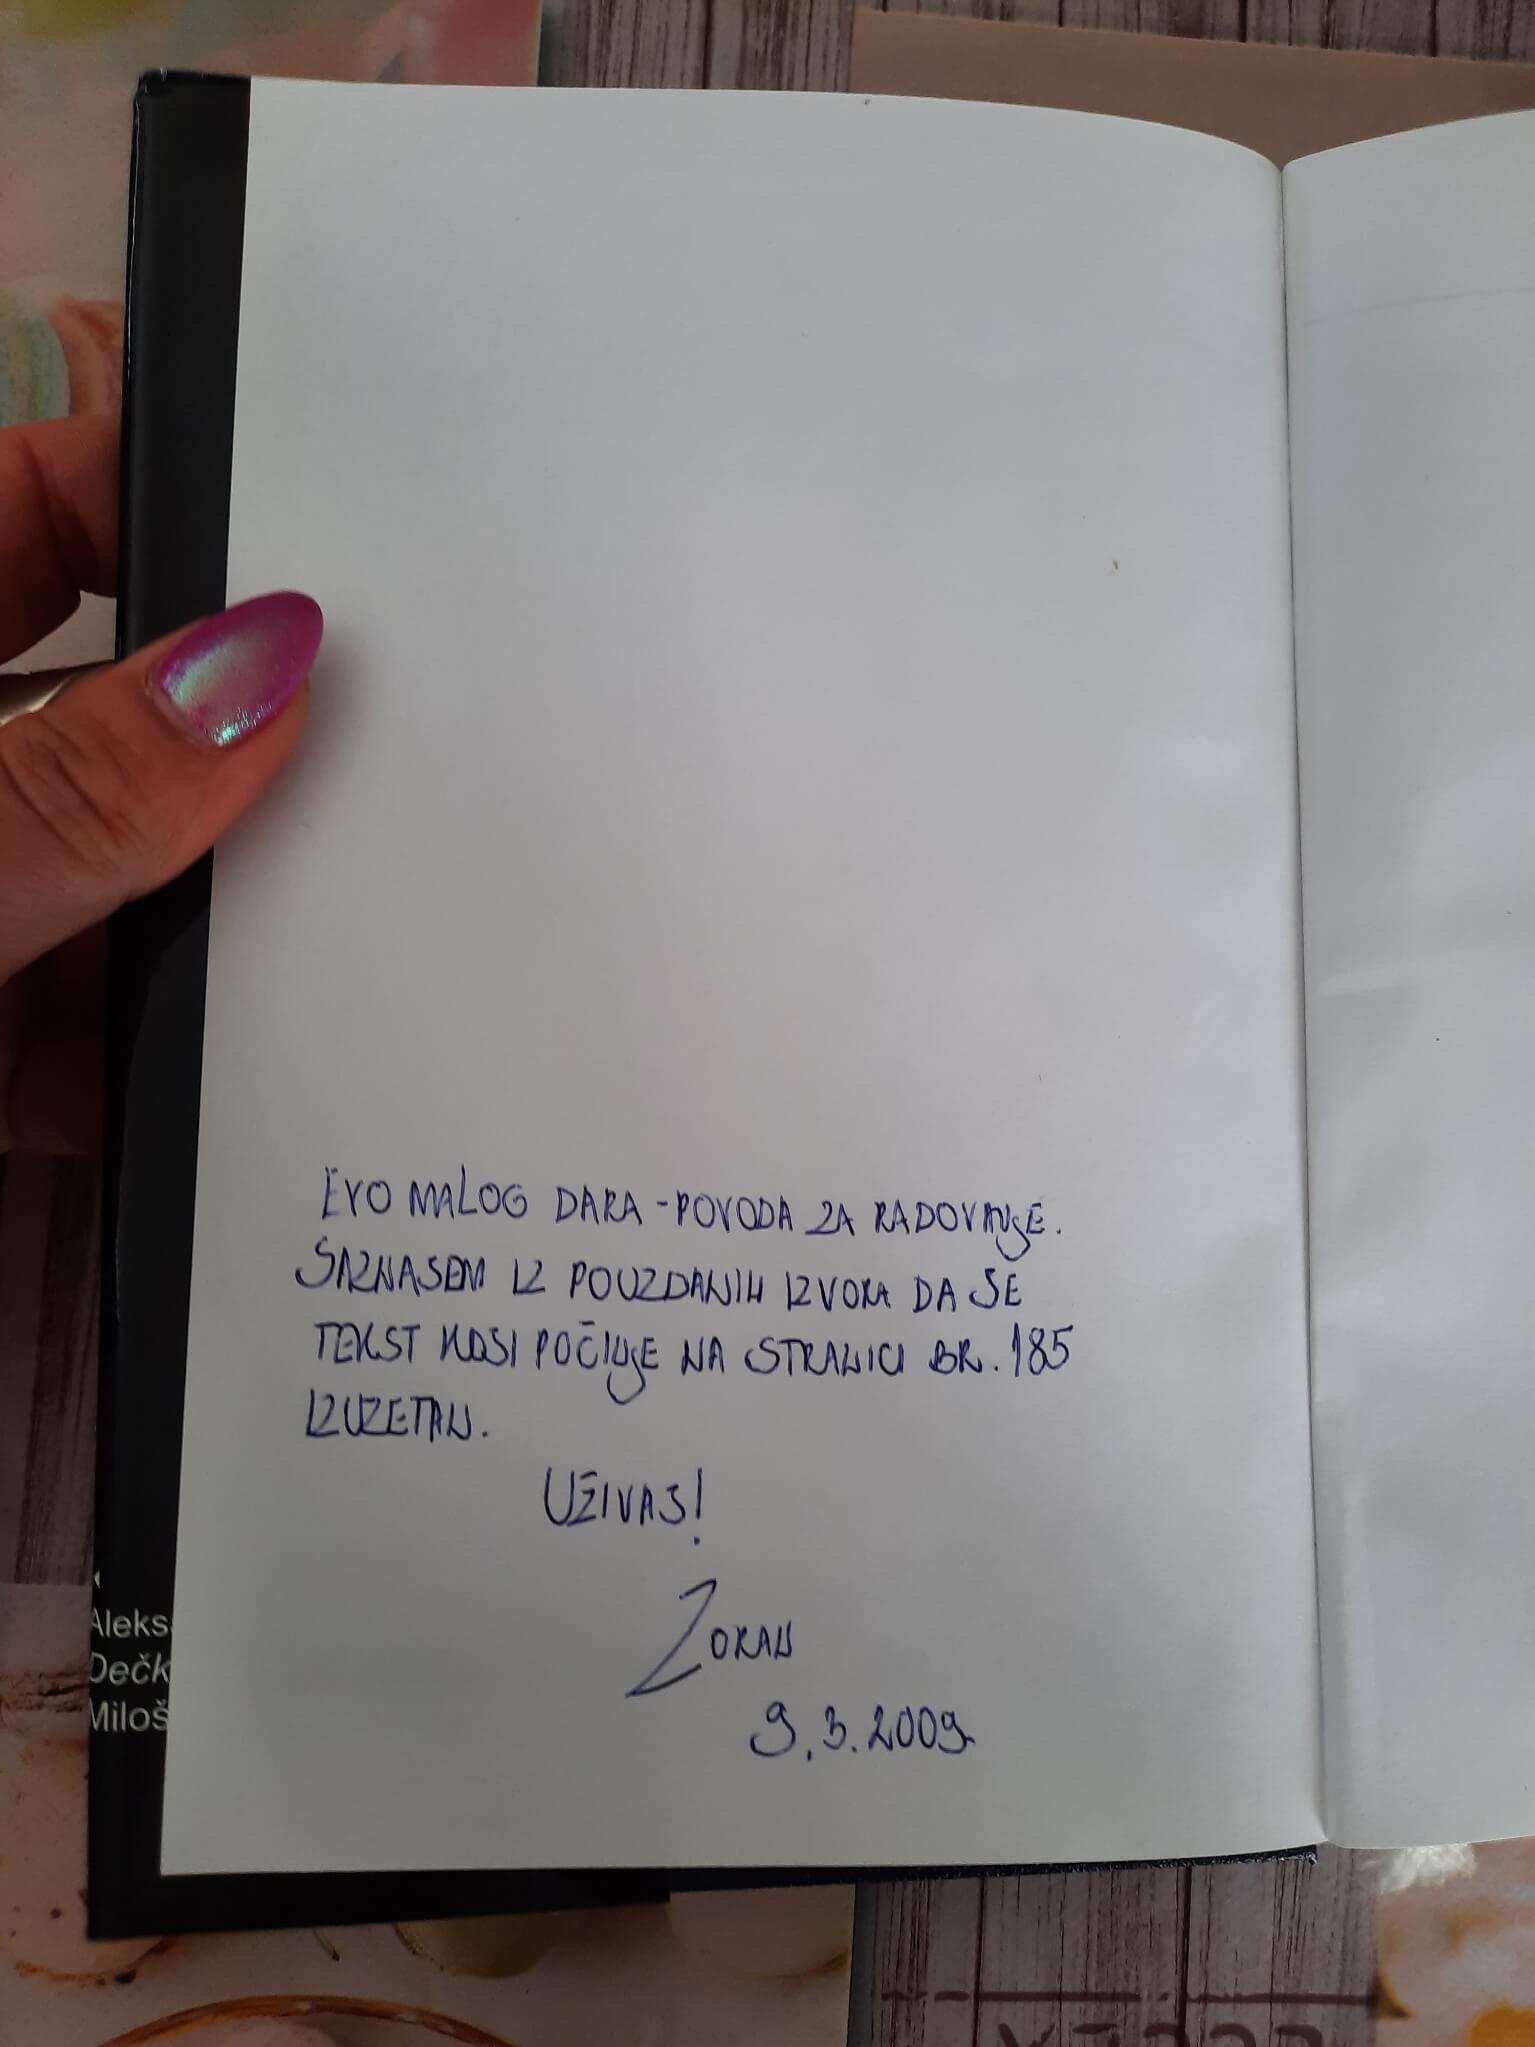 EVO MALOG DARA - POVODA ZA RADOVANJE.
SAZNASEM IZ POUZDANIH IZVORA DA SE
TEKST KOJI POČINJE NA STRANICI BR. 185
IZUZETAN.
UŽIVAJ!
ZORAN
9.3.2009.
Aleks
Dečk
Miloš